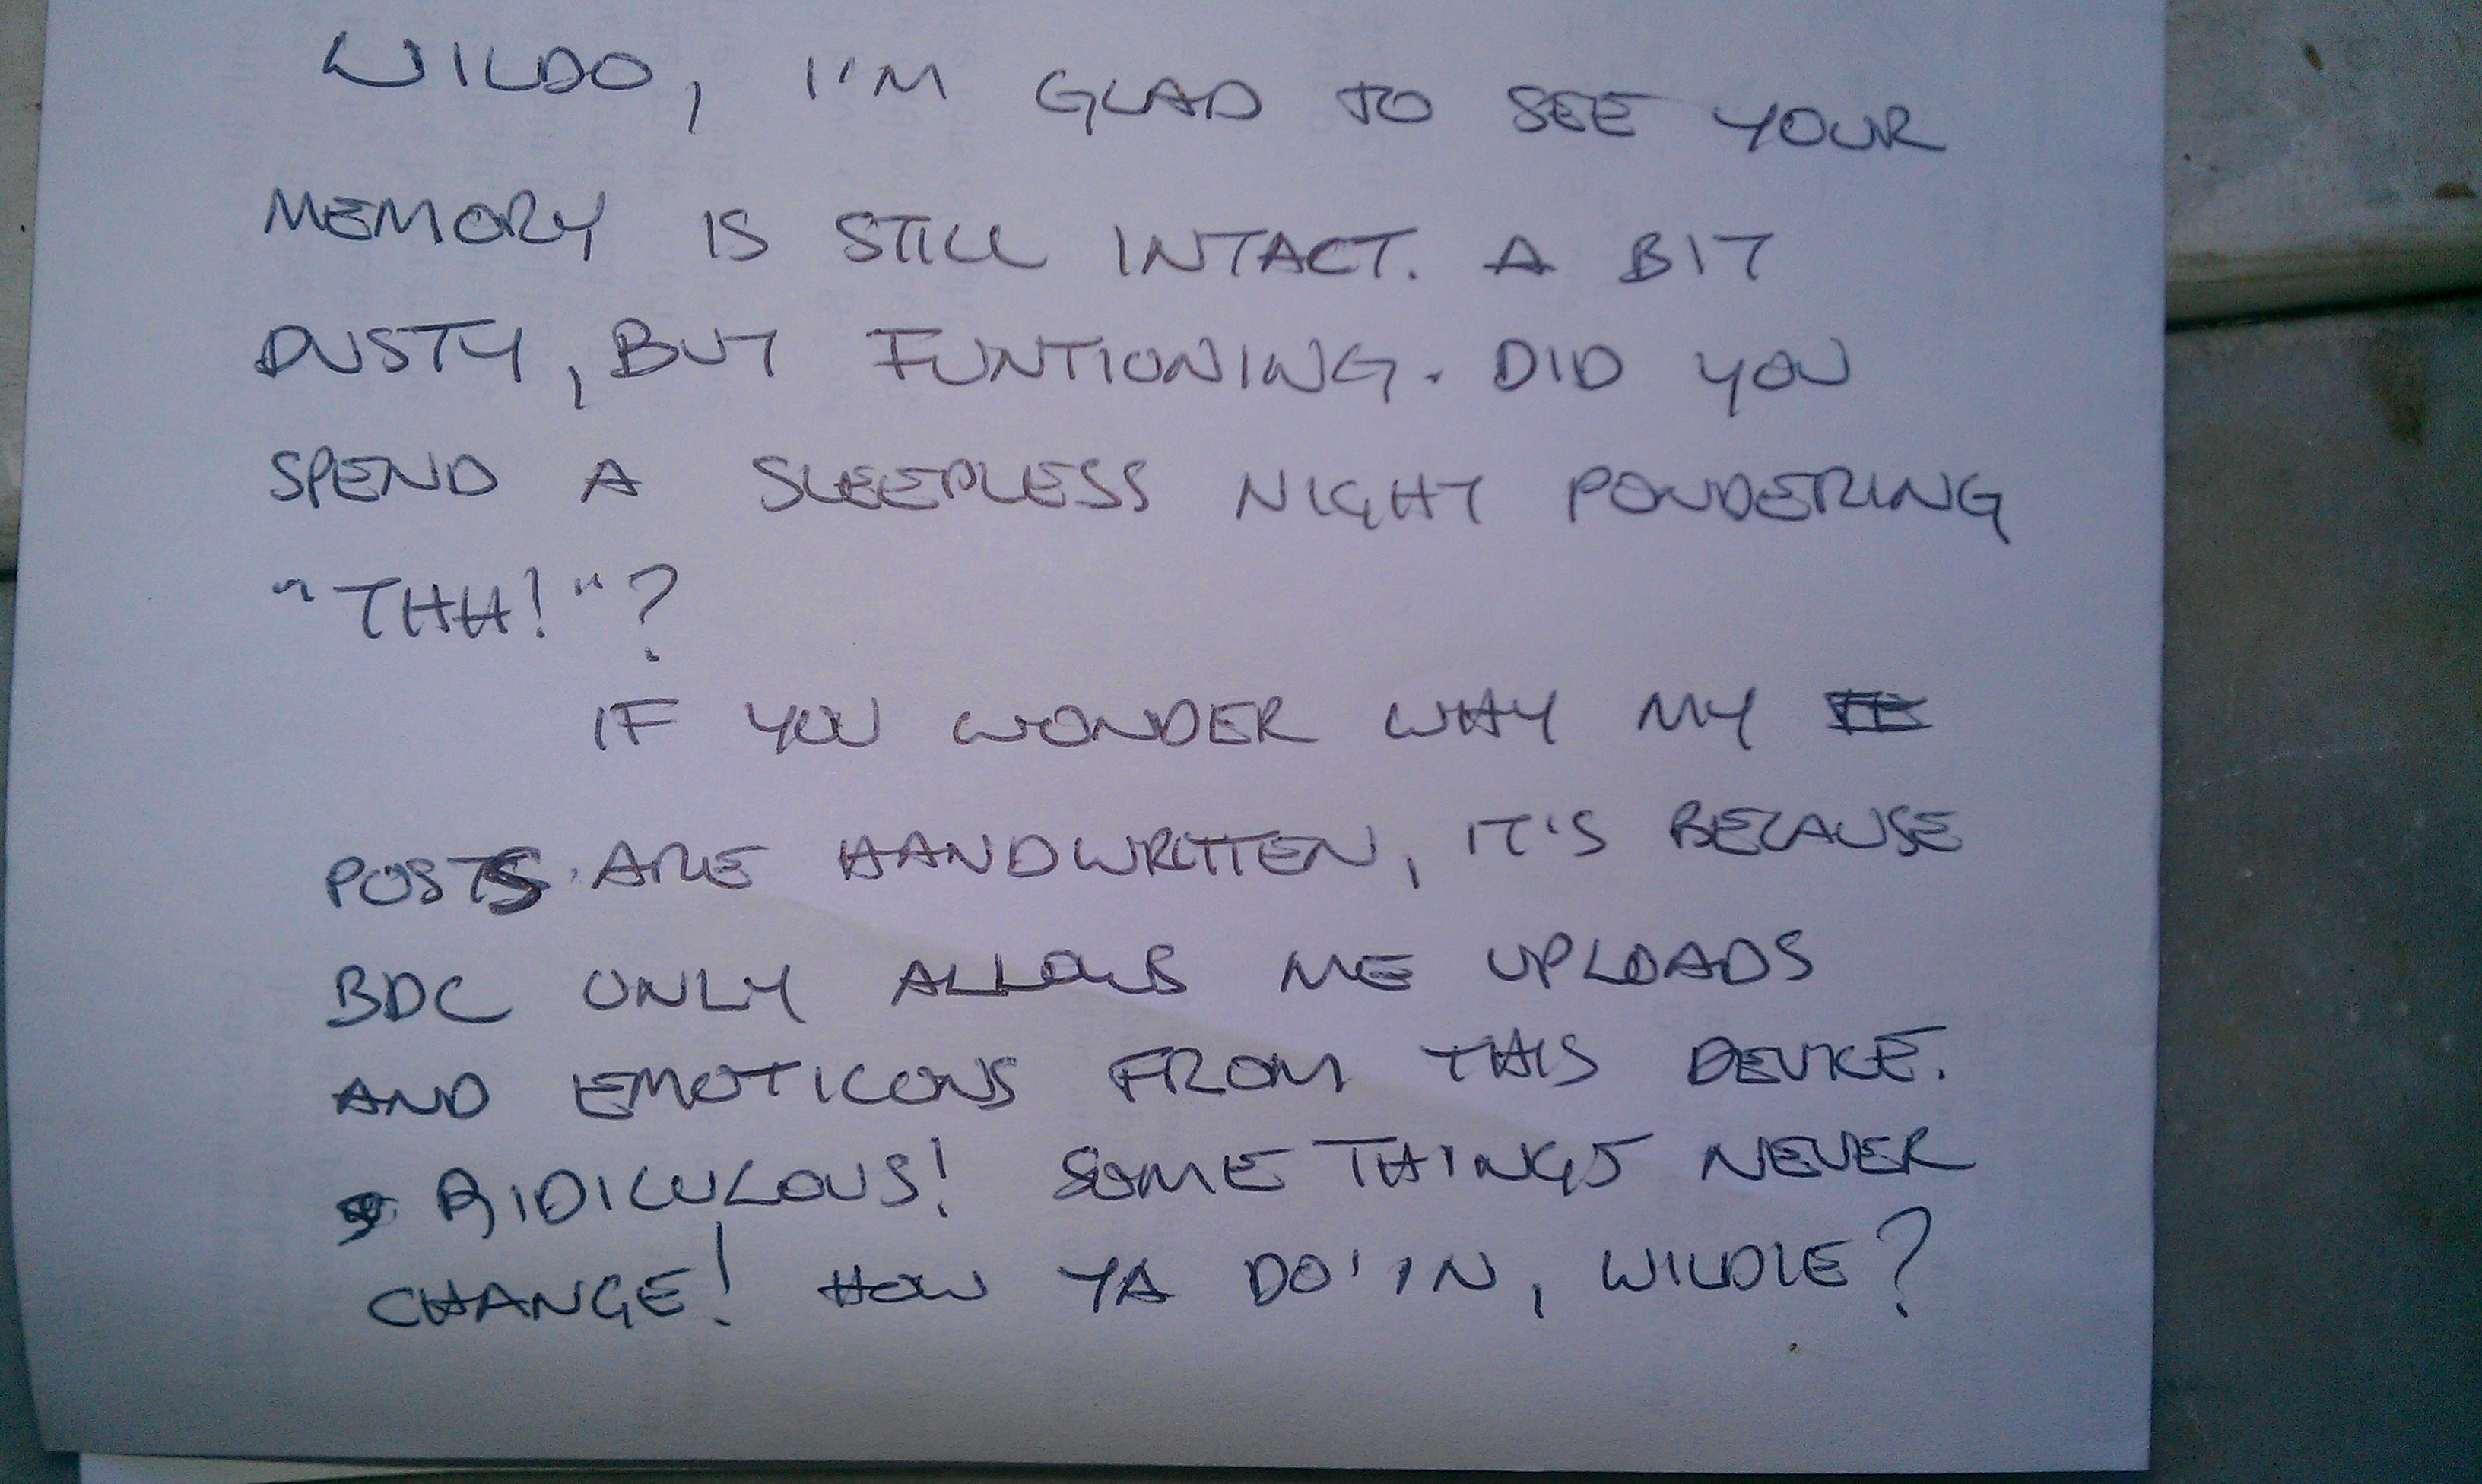 WILDO, I'M GLAD TO SEE YOUR
MEMORY IS STILL INTACT. A BIT
DUSTY, BUT FUNTIONING. DID YOU
SPEND A SLEEPLESS NIGHT PONDERING
"THH!"?
IF YOU WONDER WHY MY
POSTS ARE HANDWRITTEN, IT'S BECAUSE
BDC ONLY ALLOWS ME UPLOADS
AND EMOTICONS FROM THIS DEVICE.
RIDICULOUS! SOME THINGS NEVER
CHANGE! HOW YA DO'IN, WILDIE?